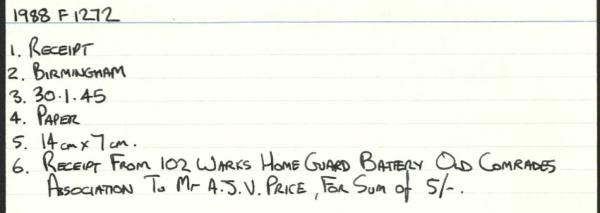 1988 F 1272
1. RECEIPT
2. BIRMINGHAM
3. 30.1.45
4. PAPER
5. 14cm x 7cm.
6. RECEIPT FROM 102 WARKS HOME GUARD BATTERY OLD COMRADES
ASSOCIATION TO Mr A.J.V. PRICE, FOR SUM of 5/-.